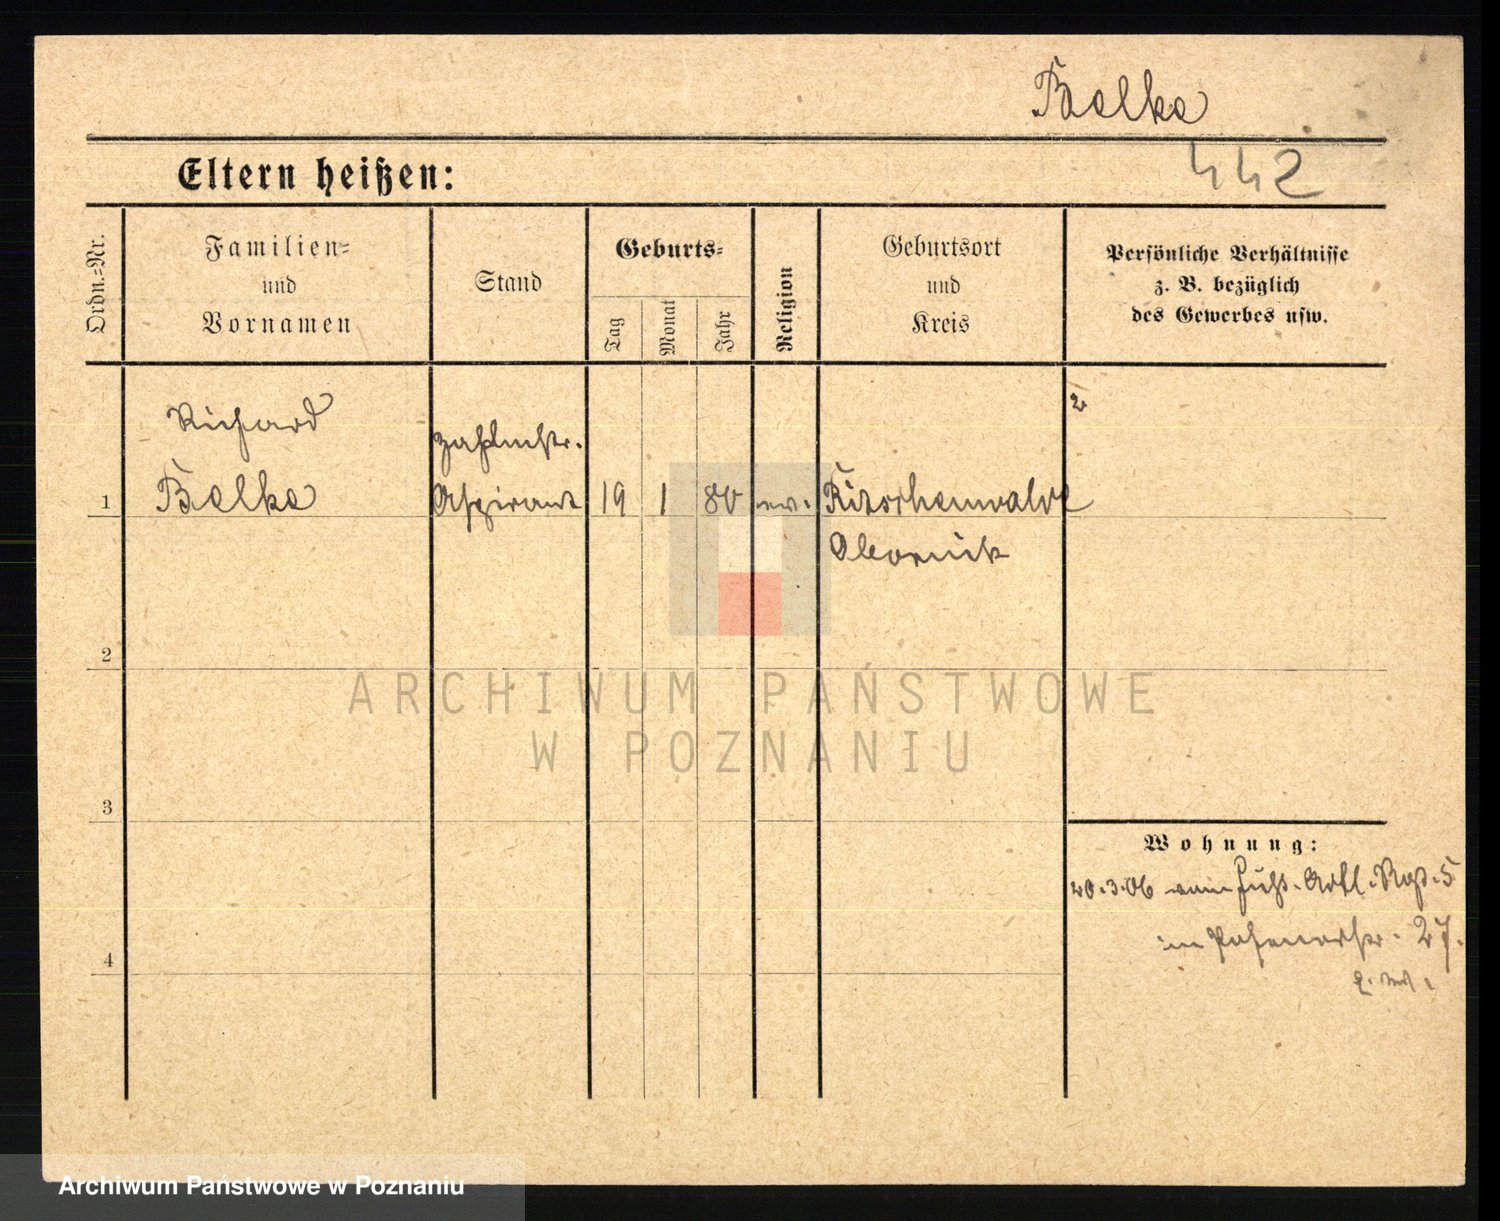 Balke
442
Eltern heißen:
Ordn.=Nr.
Familien=
und
Vornamen
Stand
Geburts=
Tag
Monat
Jahr
Religion
Geburtsort
und
Kreis
Persönliche Verhältnisse
z. B. bezüglich
des Gewerbes usw.
Richard
Zahlmstr.
1 Balke Aspirant 19 1 80 ev. Ritschenwalde
Obornik
2
3
4
ARCHIWUM PAŃSTWOWE
W POZNANIU
Wohnung:
20.3.06 vom Fußt. Artl. Rgt. 5
in Posenerstr. 27.
Archiwum Państwowe w Poznaniu